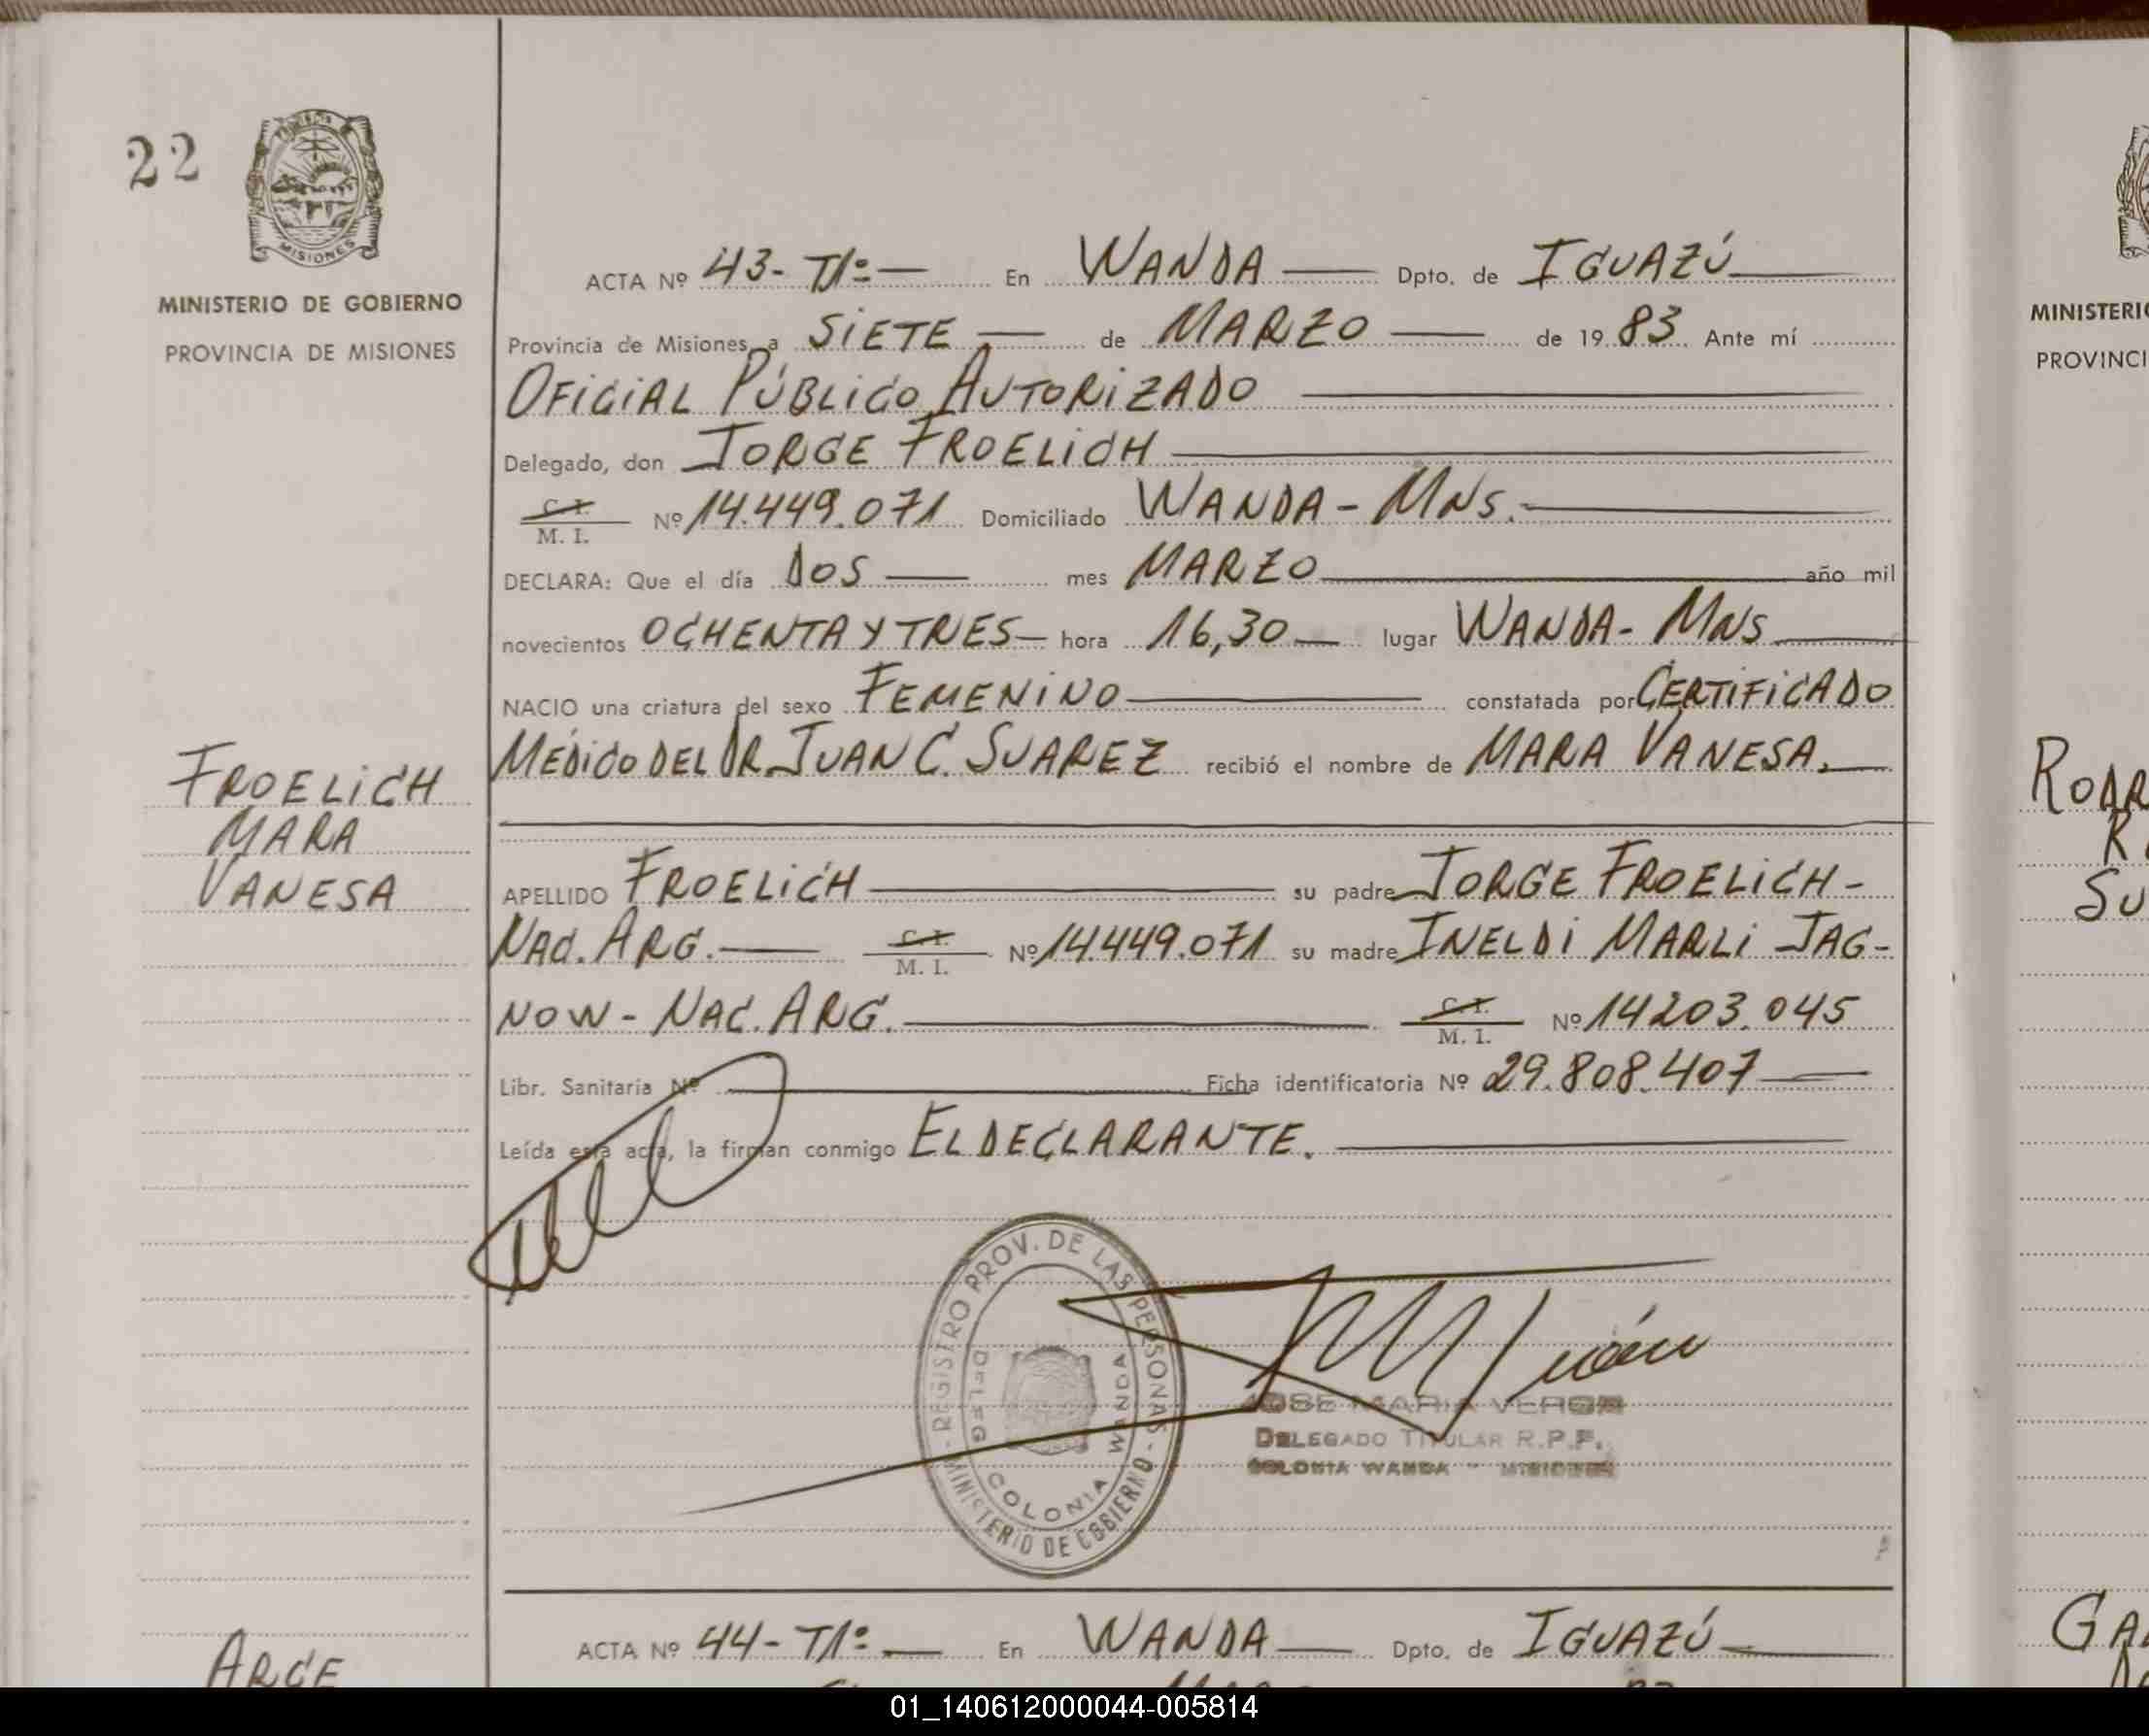 22
MISIONES
MINISTERIO DE GOBIERNO
PROVINCIA DE MISIONES
ACTA Nº 43- T1º— En WANDA Dpto. de IGUAZÚ
Provincia de Misiones, a SIETE — de MARZO — de 1983 Ante mí
OFICIAL PÚBLICO AUTORIZADO
Delegado, don JORGE FROELICH
C. I.
M. I. Nº 14.449.071 Domiciliado WANDA - MNS.
DECLARA: Que el día DOS — mes MARZO año mil
novecientos OCHENTA Y TRES — hora 16,30 — lugar WANDA - MNS
NACIO una criatura del sexo FEMENINO constatada por CERTIFICADO
MÉDICO DEL DR. JUAN C. SUAREZ recibió el nombre de MARA VANESA.
FROELICH
MARA
VANESA
APELLIDO FROELICH su padre JORGE FROELICH -
NAC. ARG. — C. I.
M. I. Nº 14.449.071 su madre INELDI MARLI JAG-
NOW - NAC. ARG. C. I.
M. I. Nº 14203.045
Libr. Sanitaria Nº Ficha identificatoria Nº 29.808.407
Leída esta acta, la firman conmigo EL DECLARANTE.
REGISTRO PROV. DE LAS PERSONAS - MINISTERIO DE GOBIERNO -
DELEG COLONIA WANDA
JOSE MARIA
DELEGADO TITULAR R.P.P.
COLONIA WANDA - MISIONES
ACTA Nº 44- T1º — En WANDA Dpto. de IGUAZÚ
ARCE
MINISTERIO
PROVINCI
RODR
SU
GA
01_140612000044-005814